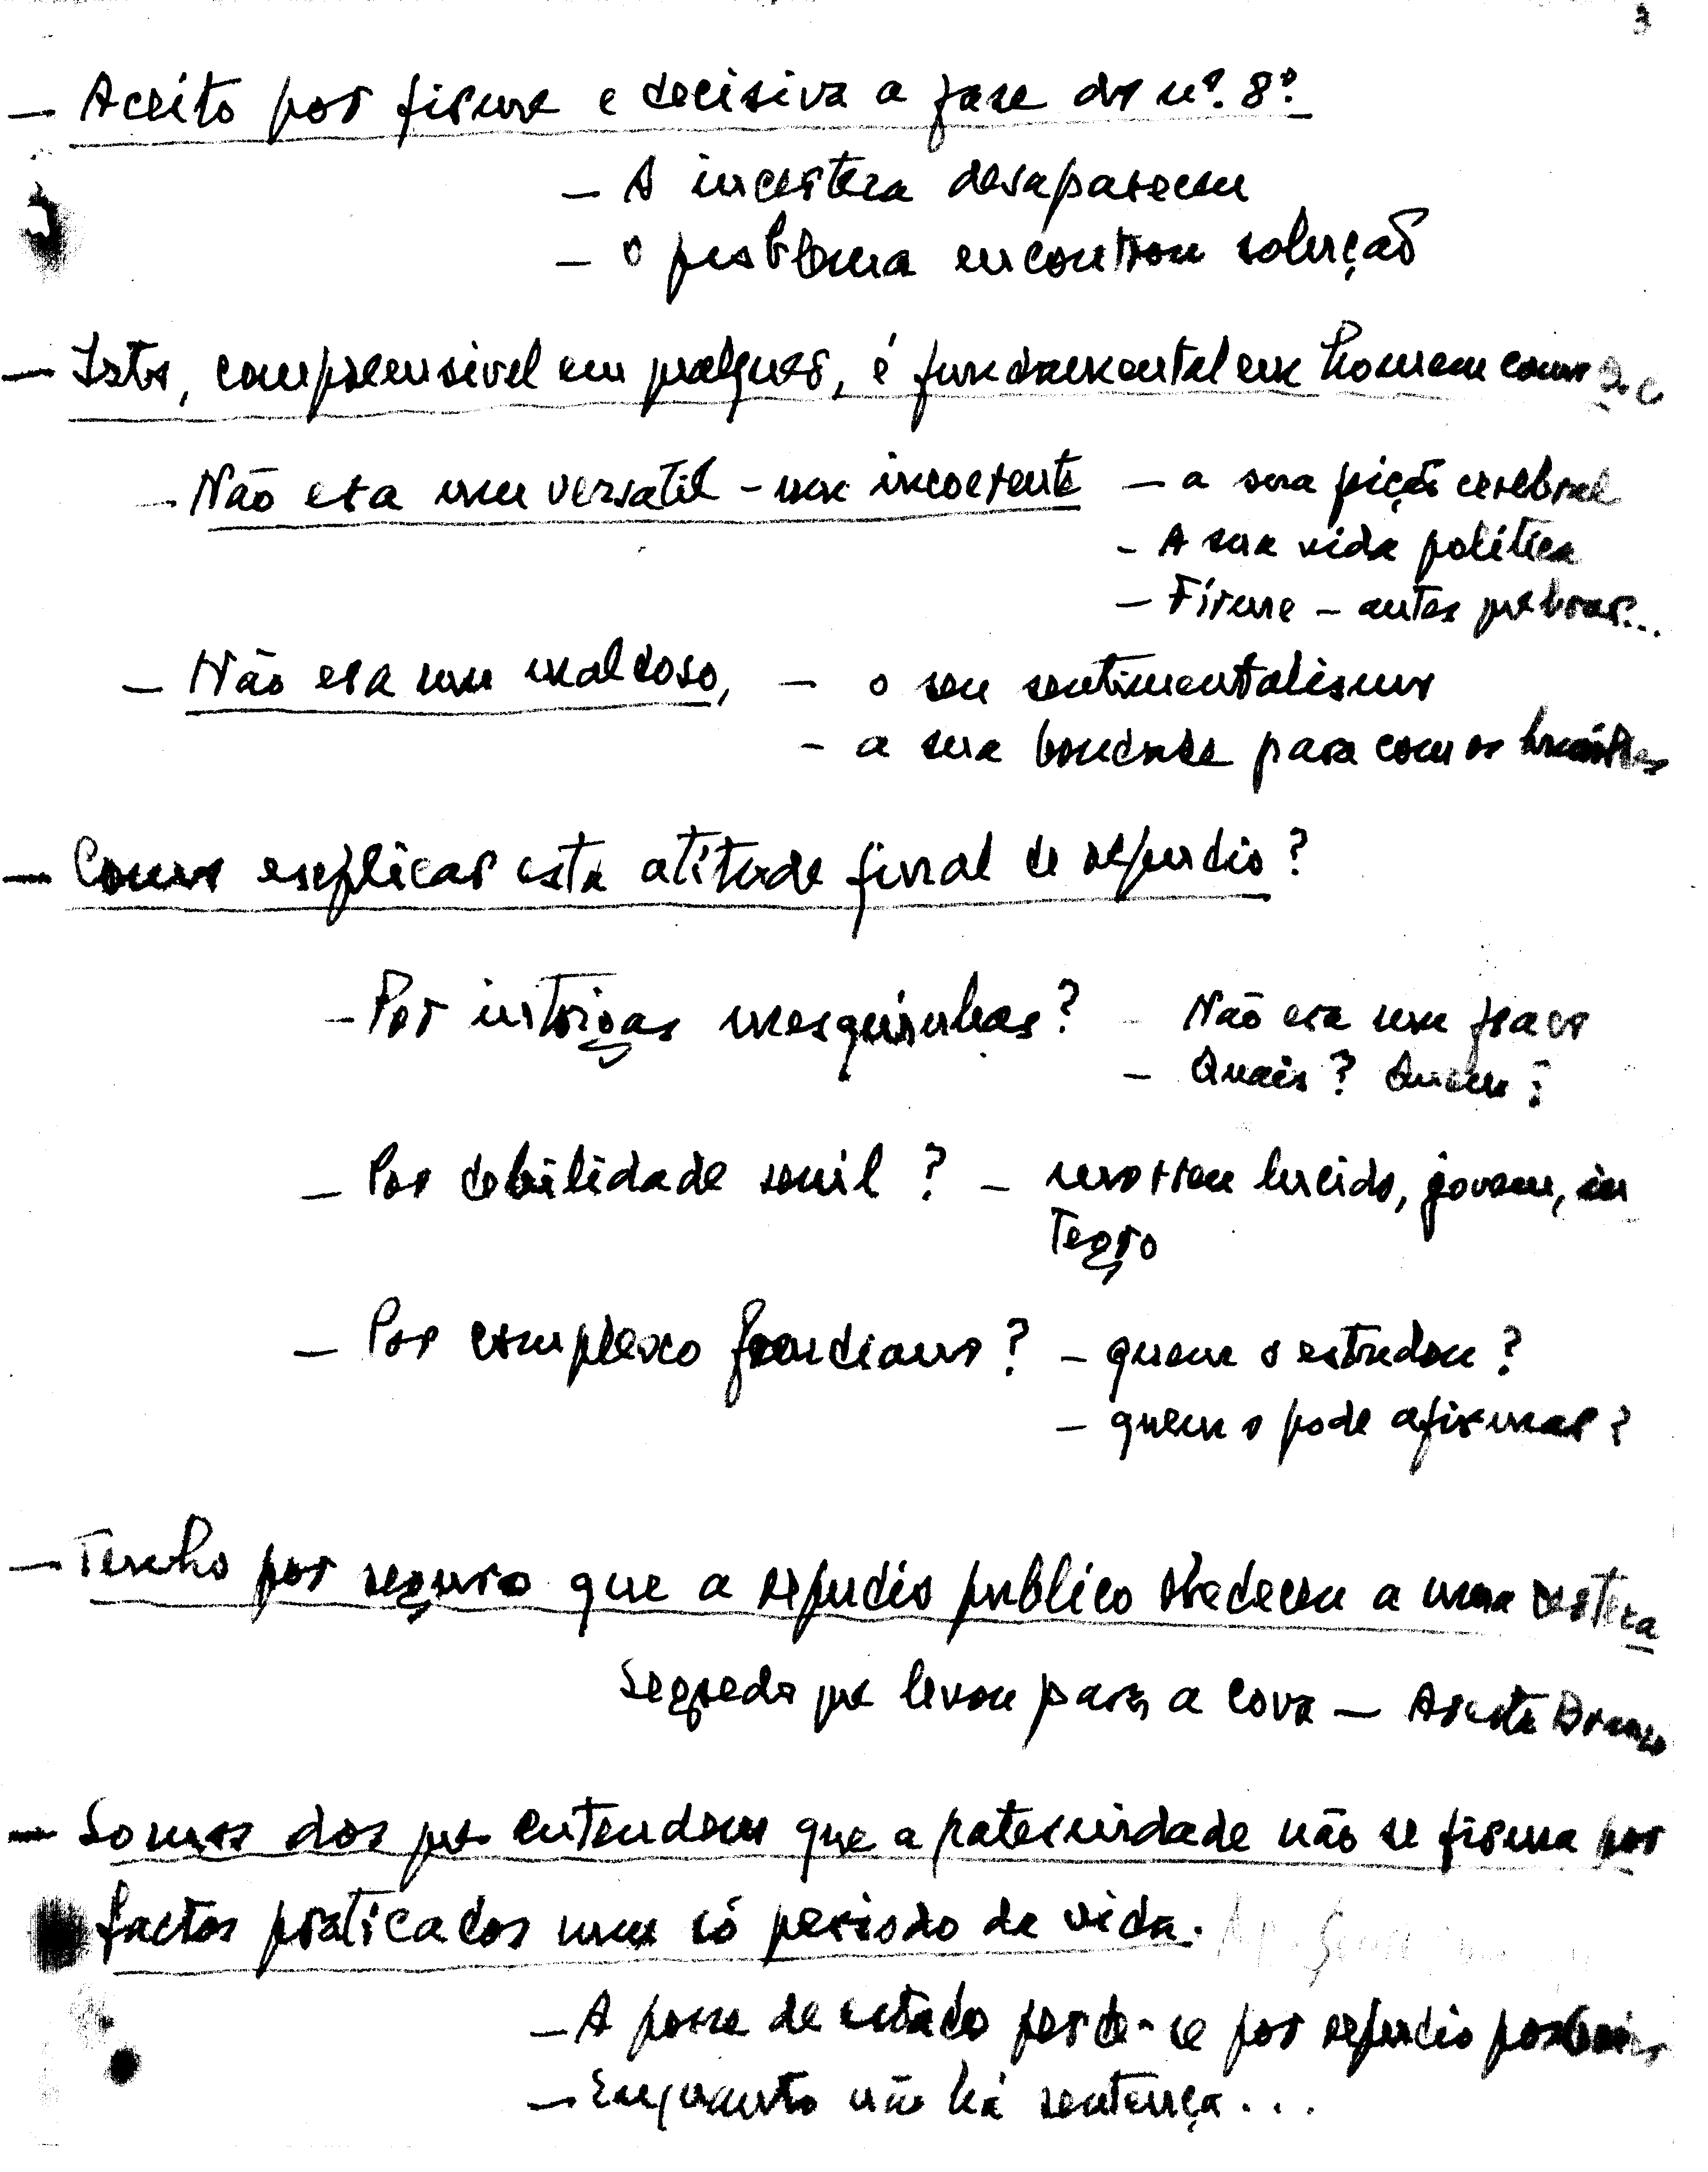 3
— Aceito por firme e decisiva a fase do nº. 8º.
— A incerteza desapareceu
— o problema encontrou solução
— Isto, compreensivel em qualquer, é fundamental em homem como
— Não era um versatil - um incoerente — a sua feição cerebral
- A sua vida politica
— Firme — antes quebrar...
— Não era um maldoso, — o seu sentimentalismo
- a sua bondade para com os
— Como explicar esta atitude final de repudio?
- Por intrigas mesquinhas? - Não era um fraco
— Quais? Quem?
— Por debilidade senil? — morreu lucido, jovem, in
tegro
— Por complexo freudiano? — quem o estudou?
— quem o pode afirmar?
— Tenho por seguro que a repudio publico obedeceu a uma certeza
Segredo que levou para a cova —
— Somos dos que entendem que a paternidade não se firma por
factos praticados num só periodo da vida.
— A posse de estado perde-se por repudio
— Enquanto não há sentença...